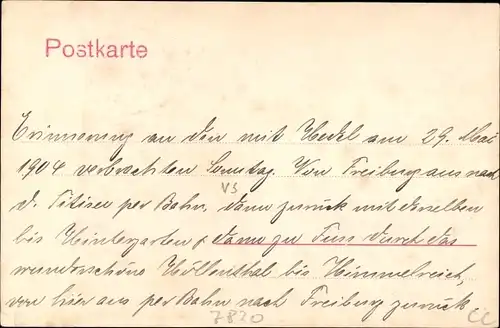 Postkarte
Erinnerung an den mit Heckl am 29. Mai
1904 verbrachten Sonntag. Von Freiburg aus nach
d. Titisee per Bahn, dann zurück mit derselben
VS
bis Hinterzarten & dann zu Fuss durch das
wunderschöne Höllenthal bis Himmelreich,
von hier aus per Bahn nach Freiburg zurück.
7820
CC